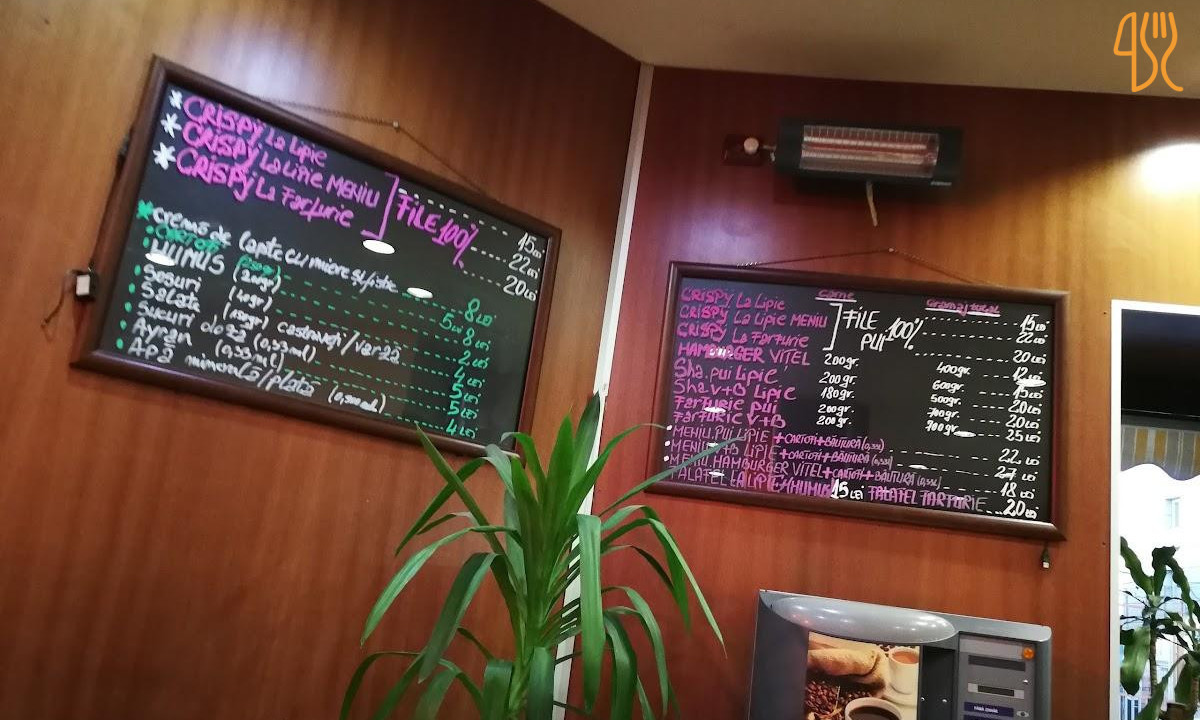 * CRISPY La Lipie
* CRISPY La Lipie MENIU ] FILE 100% 15 Lei
* CRISPY La Farfurie 22 Lei
20 Lei
* Cremă de lapte cu miere și fistic 8 Lei
CARTOFI (150gr) 5 Lei
HUMUS (200gr) 8 Lei
Sosuri (40gr) 2 Lei
Salate (150gr) castraveți/varză 4 Lei
Sucuri doză (0,33ml) 5 Lei
Ayran (0,33ml) 5 Lei
APĂ minerală/plată 4 Lei
Carne Gramaj total
CRISPY La Lipie 15 Lei
CRISPY La Lipie MENIU ] FILE PUI 100% 22 Lei
CRISPY La Farfurie 20 Lei
HAMBURGER VITEL 200gr. 400gr. 12 Lei
Sha.pui Lipie 200gr. 600gr. 15 Lei
Sha V+B Lipie 180gr. 500gr. 20 Lei
Farfurie pui 200gr. 700gr. 20 Lei
Farfurie V+B 200gr. 700gr. 25 Lei
MENIU.PUI LIPIE + CARTOFI + BĂUTURĂ (0,33l) 22 Lei
MENIU.V+B LIPIE + CARTOFI + BĂUTURĂ (0,33l) 27 Lei
MENIU.HAMBURGER VITEL + CARTOFI + BĂUTURĂ (0,33l) 18 Lei
FALAFEL LA LIPIE + HUMUS 15 Lei FALAFEL FARFURIE 20 Lei